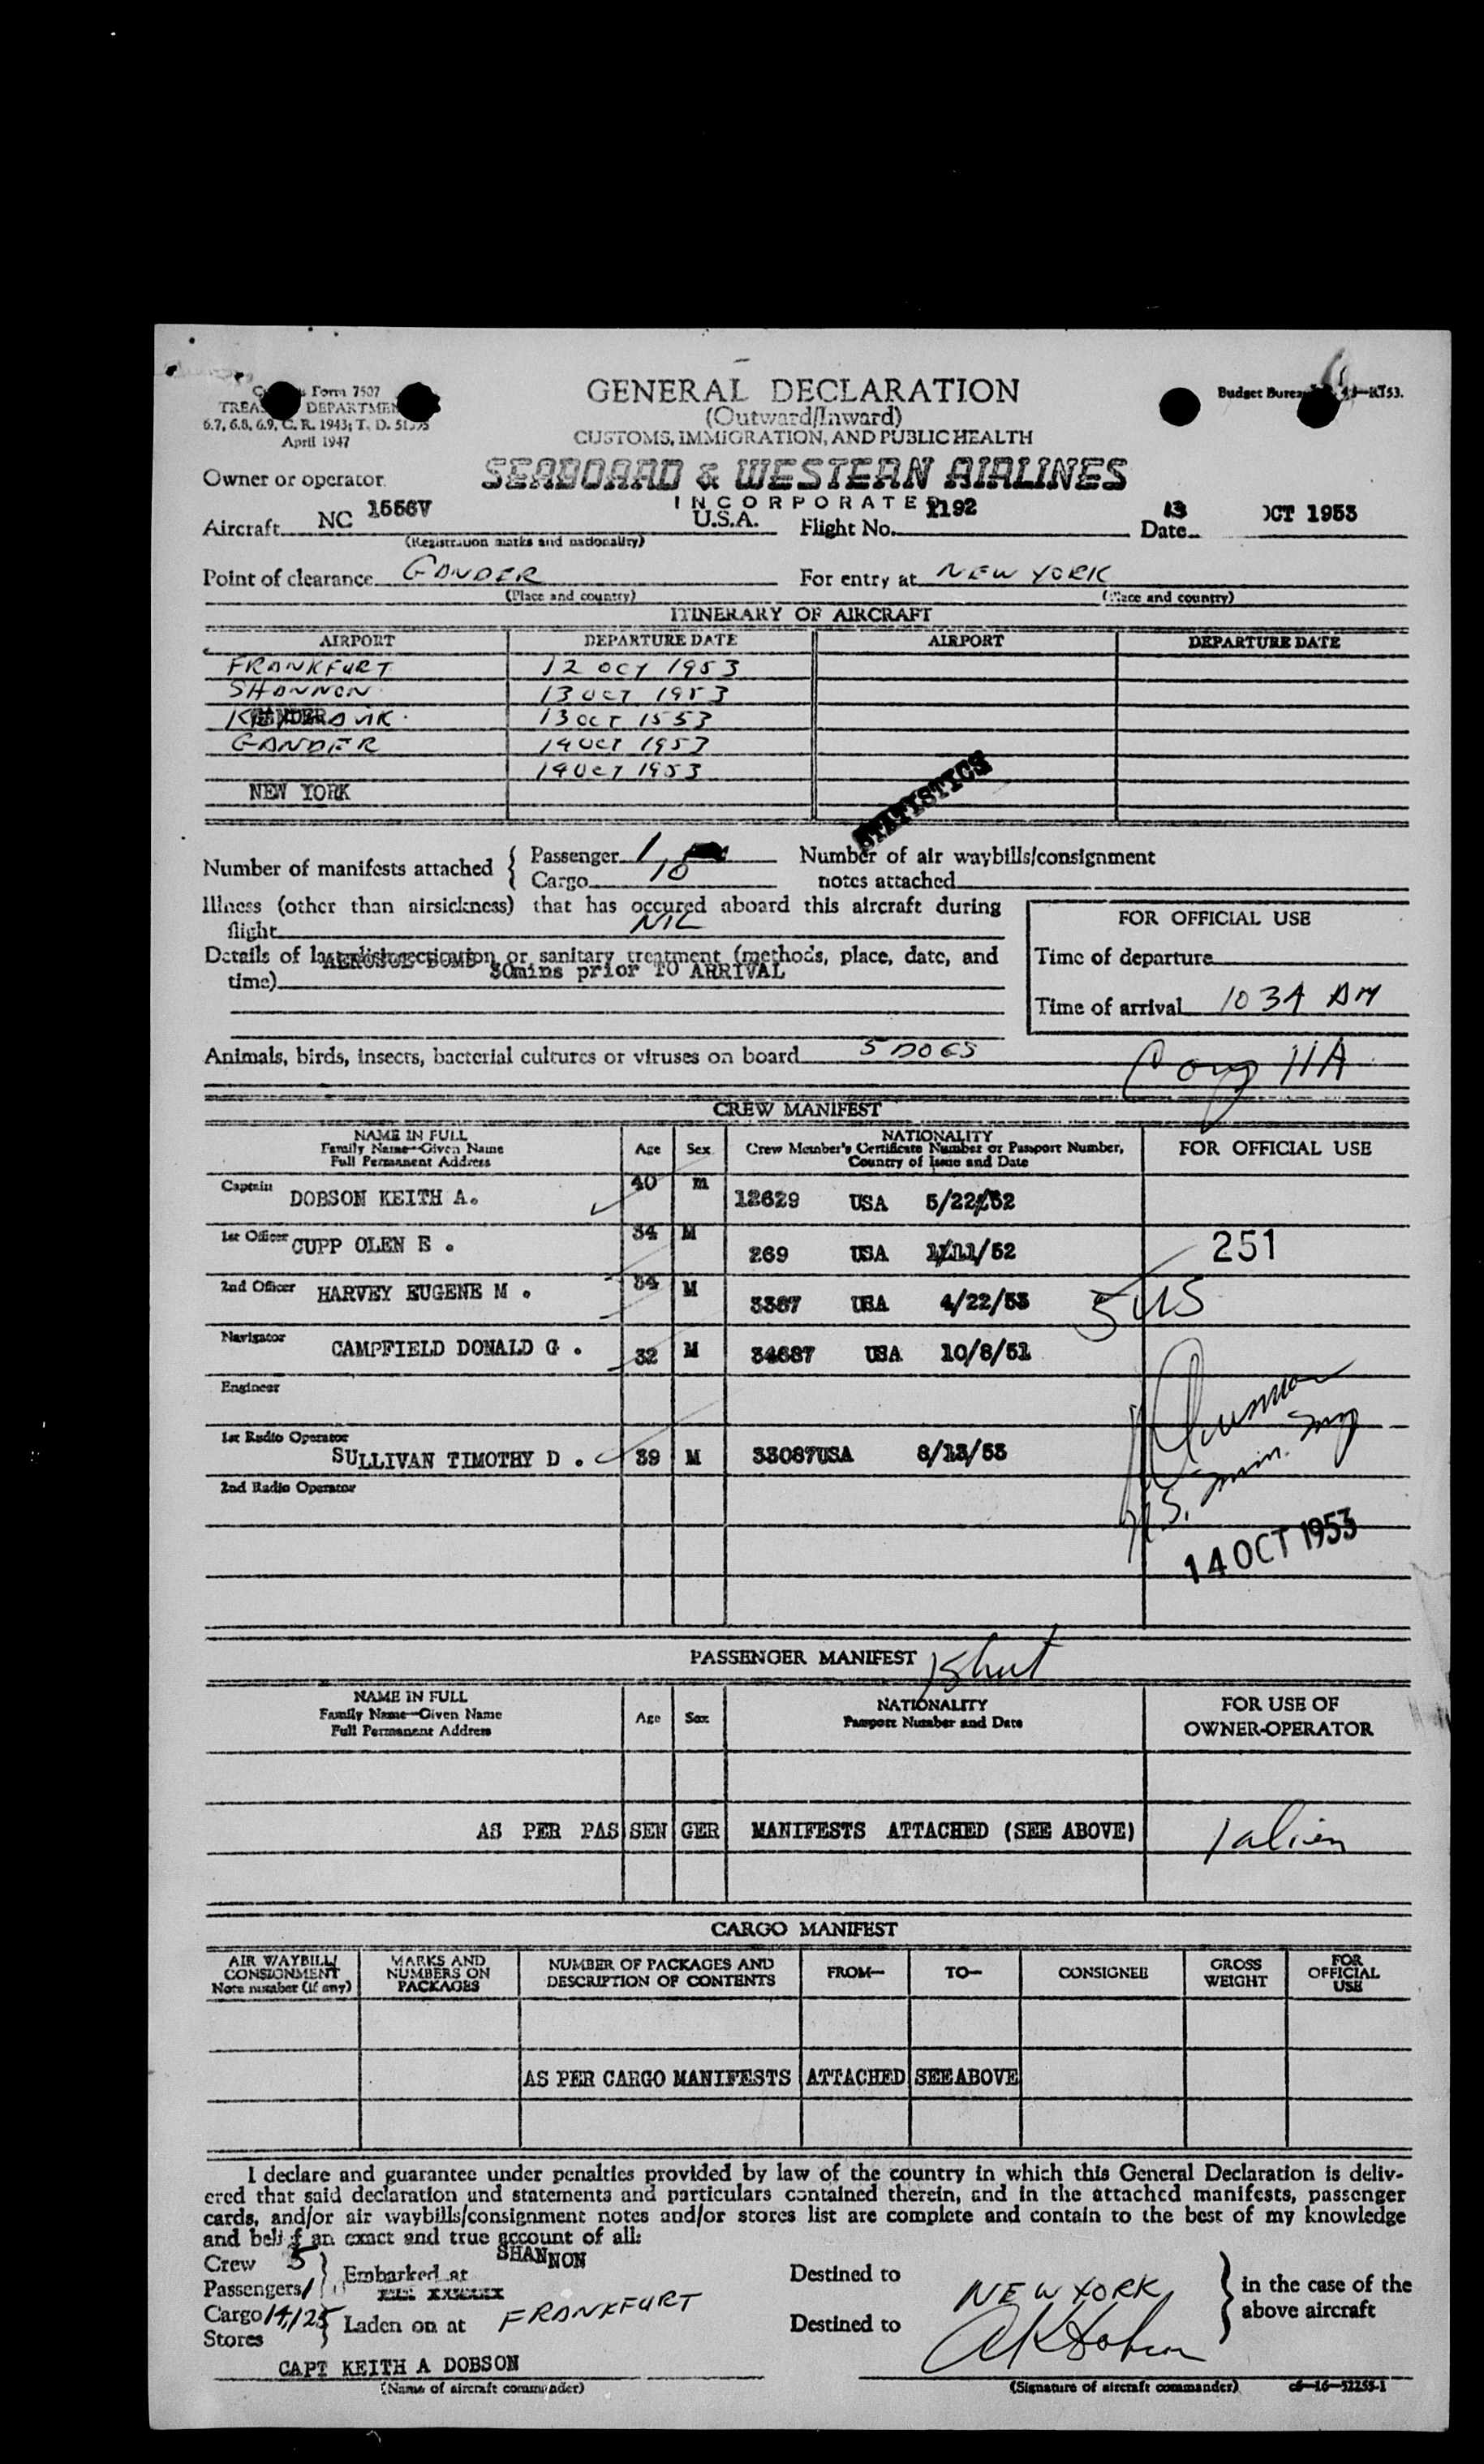 Form 7507
TREAS DEPARTMEN
6.7, 6.8, 6.9, C. R. 1943; T. D.
April 1947
GENERAL DECLARATION
(Outward/Inward)
CUSTOMS, IMMIGRATION, AND PUBLIC HEALTH
Budget Burea
Owner or operator
SEABOARD & WESTERN AIRLINES
INCORPORATED
Aircraft NC 1556V U.S.A. Flight No. 1192 Date 13 OCT 1953
(Registration marks and nationality)
Point of clearance GANDER For entry at NEW YORK
(Place and country) (Place and country)
ITINERARY OF AIRCRAFT
AIRPORT DEPARTURE DATE AIRPORT DEPARTURE DATE
FRANKFURT 12 OCT 1953
SHANNON 13 OCT 1953
13 OCT 1953
GANDER 14 OCT 1953
14 OCT 1953
NEW YORK
STATISTICS
Number of manifests attached { Passenger 1
Cargo 10
Number of air waybills/consignment
notes attached
Illness (other than airsickness) that has occured aboard this aircraft during
flight NIL
Details of last disinsection or sanitary treatment (methods, place, date, and
time)
AEROSOL BOMB 30mins prior TO ARRIVAL
FOR OFFICIAL USE
Time of departure
Time of arrival 1034 AM
Animals, birds, insects, bacterial cultures or viruses on board 5 DOGS
CREW MANIFEST
NAME IN FULL
Family Name—Given Name
Full Permanent Address
Age Sex
NATIONALITY
Crew Member's Certificate Number or Passport Number,
Country of Issue and Date
FOR OFFICIAL USE
Captain DOBSON KEITH A. 40 m 12629 USA 5/22/52
1st Officer CUPP OLEN E . 34 M 269 USA 1/11/52
251
2nd Officer HARVEY EUGENE M . 34 M 3367 USA 4/22/53
5 US
Navigator CAMPFIELD DONALD G . 32 M 34687 USA 10/8/51
Engineer
1st Radio Operator SULLIVAN TIMOTHY D . 39 M 33087USA 8/13/53
2nd Radio Operator
14 OCT 1953
PASSENGER MANIFEST
NAME IN FULL
Family Name—Given Name
Full Permanent Address
Age Sex
NATIONALITY
Passport Number and Date
FOR USE OF
OWNER-OPERATOR
AS PER PASSENGER MANIFESTS ATTACHED (SEE ABOVE) 1 alien
CARGO MANIFEST
AIR WAYBILL/
CONSIGNMENT
Note number (if any)
MARKS AND
NUMBERS ON
PACKAGES
NUMBER OF PACKAGES AND
DESCRIPTION OF CONTENTS
FROM— TO— CONSIGNEE
GROSS
WEIGHT
FOR
OFFICIAL
USE
AS PER CARGO MANIFESTS ATTACHED SEEABOVE
I declare and guarantee under penalties provided by law of the country in which this General Declaration is deliv-
ered that said declaration and statements and particulars contained therein, and in the attached manifests, passenger
cards, and/or air waybills/consignment notes and/or stores list are complete and contain to the best of my knowledge
and belief an exact and true account of all:
Crew 5
Passengers 1
Cargo 14,125
Stores
Embarked at SHANNON
Laden on at FRANKFURT
Destined to NEW YORK
Destined to
in the case of the
above aircraft
CAPT KEITH A DOBSON
(Name of aircraft commander) (Signature of aircraft commander) c6—16—52253-1